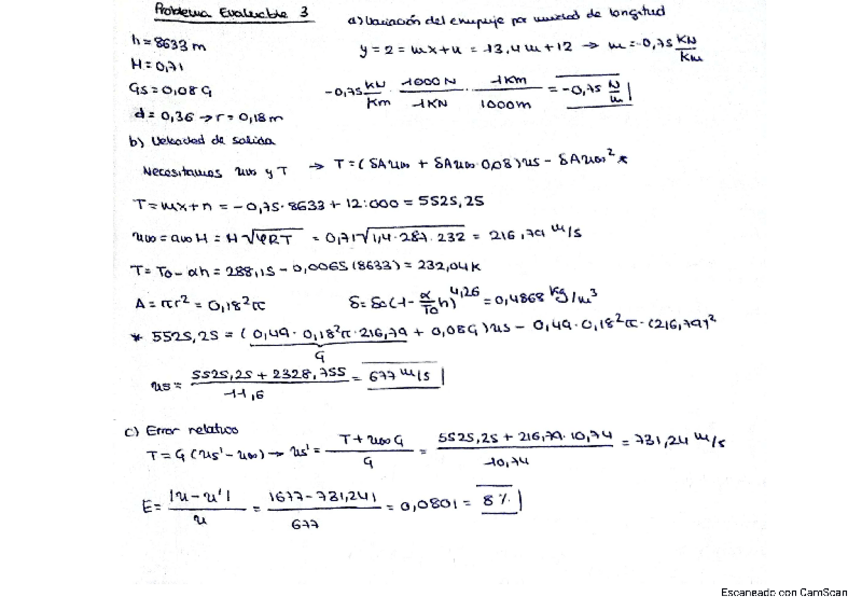 Problema Evaluable 3
a) Variación del empuje por unidad de longitud
h = 8633 m
y = 2 = mx+n = 13,4m + 12 → m = -0,75 KN/Km
H = 0,71
Gs = 0,08G
-0,75 KN/Km · 1000N/1KN · 1Km/1000m = -0,75 N/m
d = 0,36 → r = 0,18m
b) Velocidad de salida
Necesitamos u∞ y T → T = (δAu∞ + δAu∞·0,08)us - δAu∞² *
T = mx+n = -0,75·8633 + 12·000 = 5525,25
u∞ = a∞H = H√γRT = 0,71√1,4·287·232 = 216,79 m/s
T = To - αh = 288,15 - 0,0065(8633) = 232,04K
A = πr² = 0,18²π δ = δo(1 - α/To h)^4,26 = 0,4868 kg/m³
* 5525,25 = (0,49·0,18²π·216,79 + 0,08G)us - 0,49·0,18²π·(216,79)²
G
us = 5525,25 + 2328,755/11,6 = 677 m/s
c) Error relativo
T = G(us' - u∞) → us' = T + u∞G/G = 5525,25 + 216,79·10,74/10,74 = 731,24 m/s
E = |u - u'|/u = |677 - 731,24|/677 = 0,0801 = 8%
Escaneado con CamScan